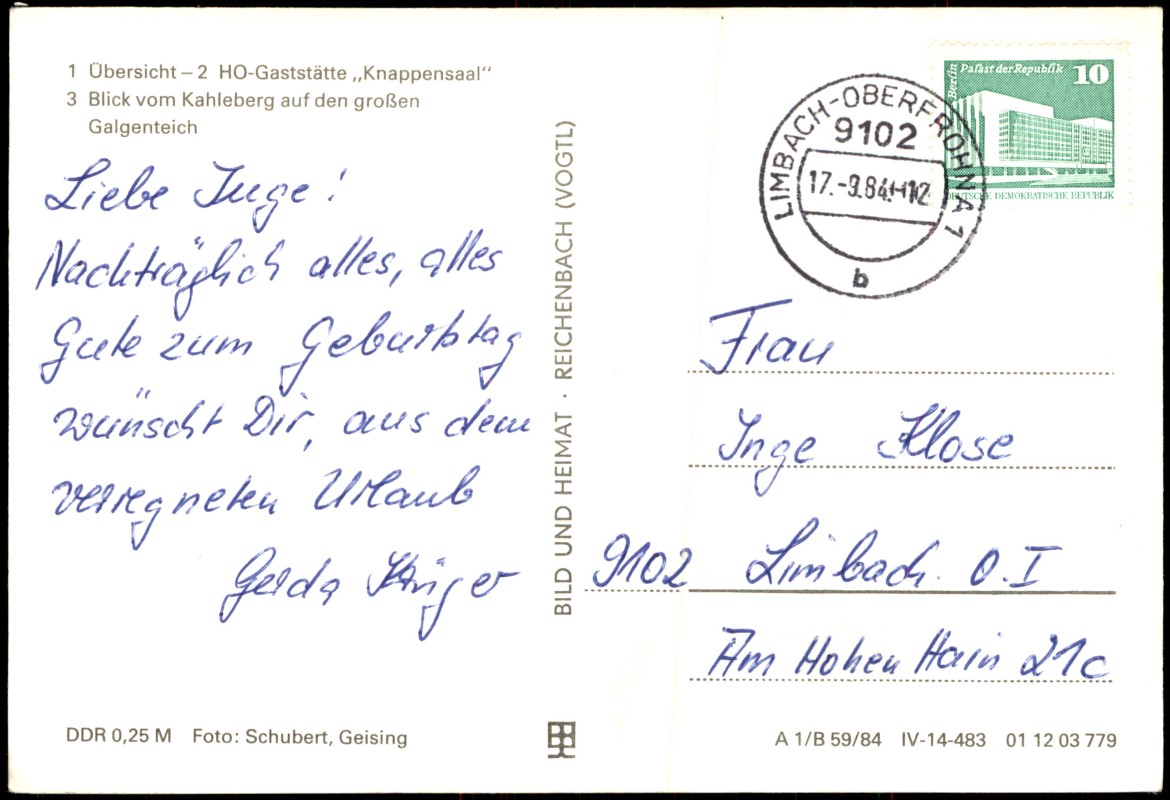 1 Übersicht – 2 HO-Gaststätte „Knappensaal“
3 Blick vom Kahleberg auf den großen
Galgenteich
Liebe Inge!
Nachträglich alles, alles
Gute zum Geburtstag
wünscht Dir, aus dem
verregneten Urlaub
Gerda Krüger
DDR 0,25 M Foto: Schubert, Geising
BILD UND HEIMAT · REICHENBACH (VOGTL)
LIMBACH-OBERFROHNA 1
9102
17.-9.84.-12
b
Berlin Palast der Republik 10
DEUTSCHE DEMOKRATISCHE REPUBLIK
Frau
Inge Klose
9102 Limbach. O. I
Am Hohen Hain 21c
A 1/B 59/84 IV-14-483 01 12 03 779